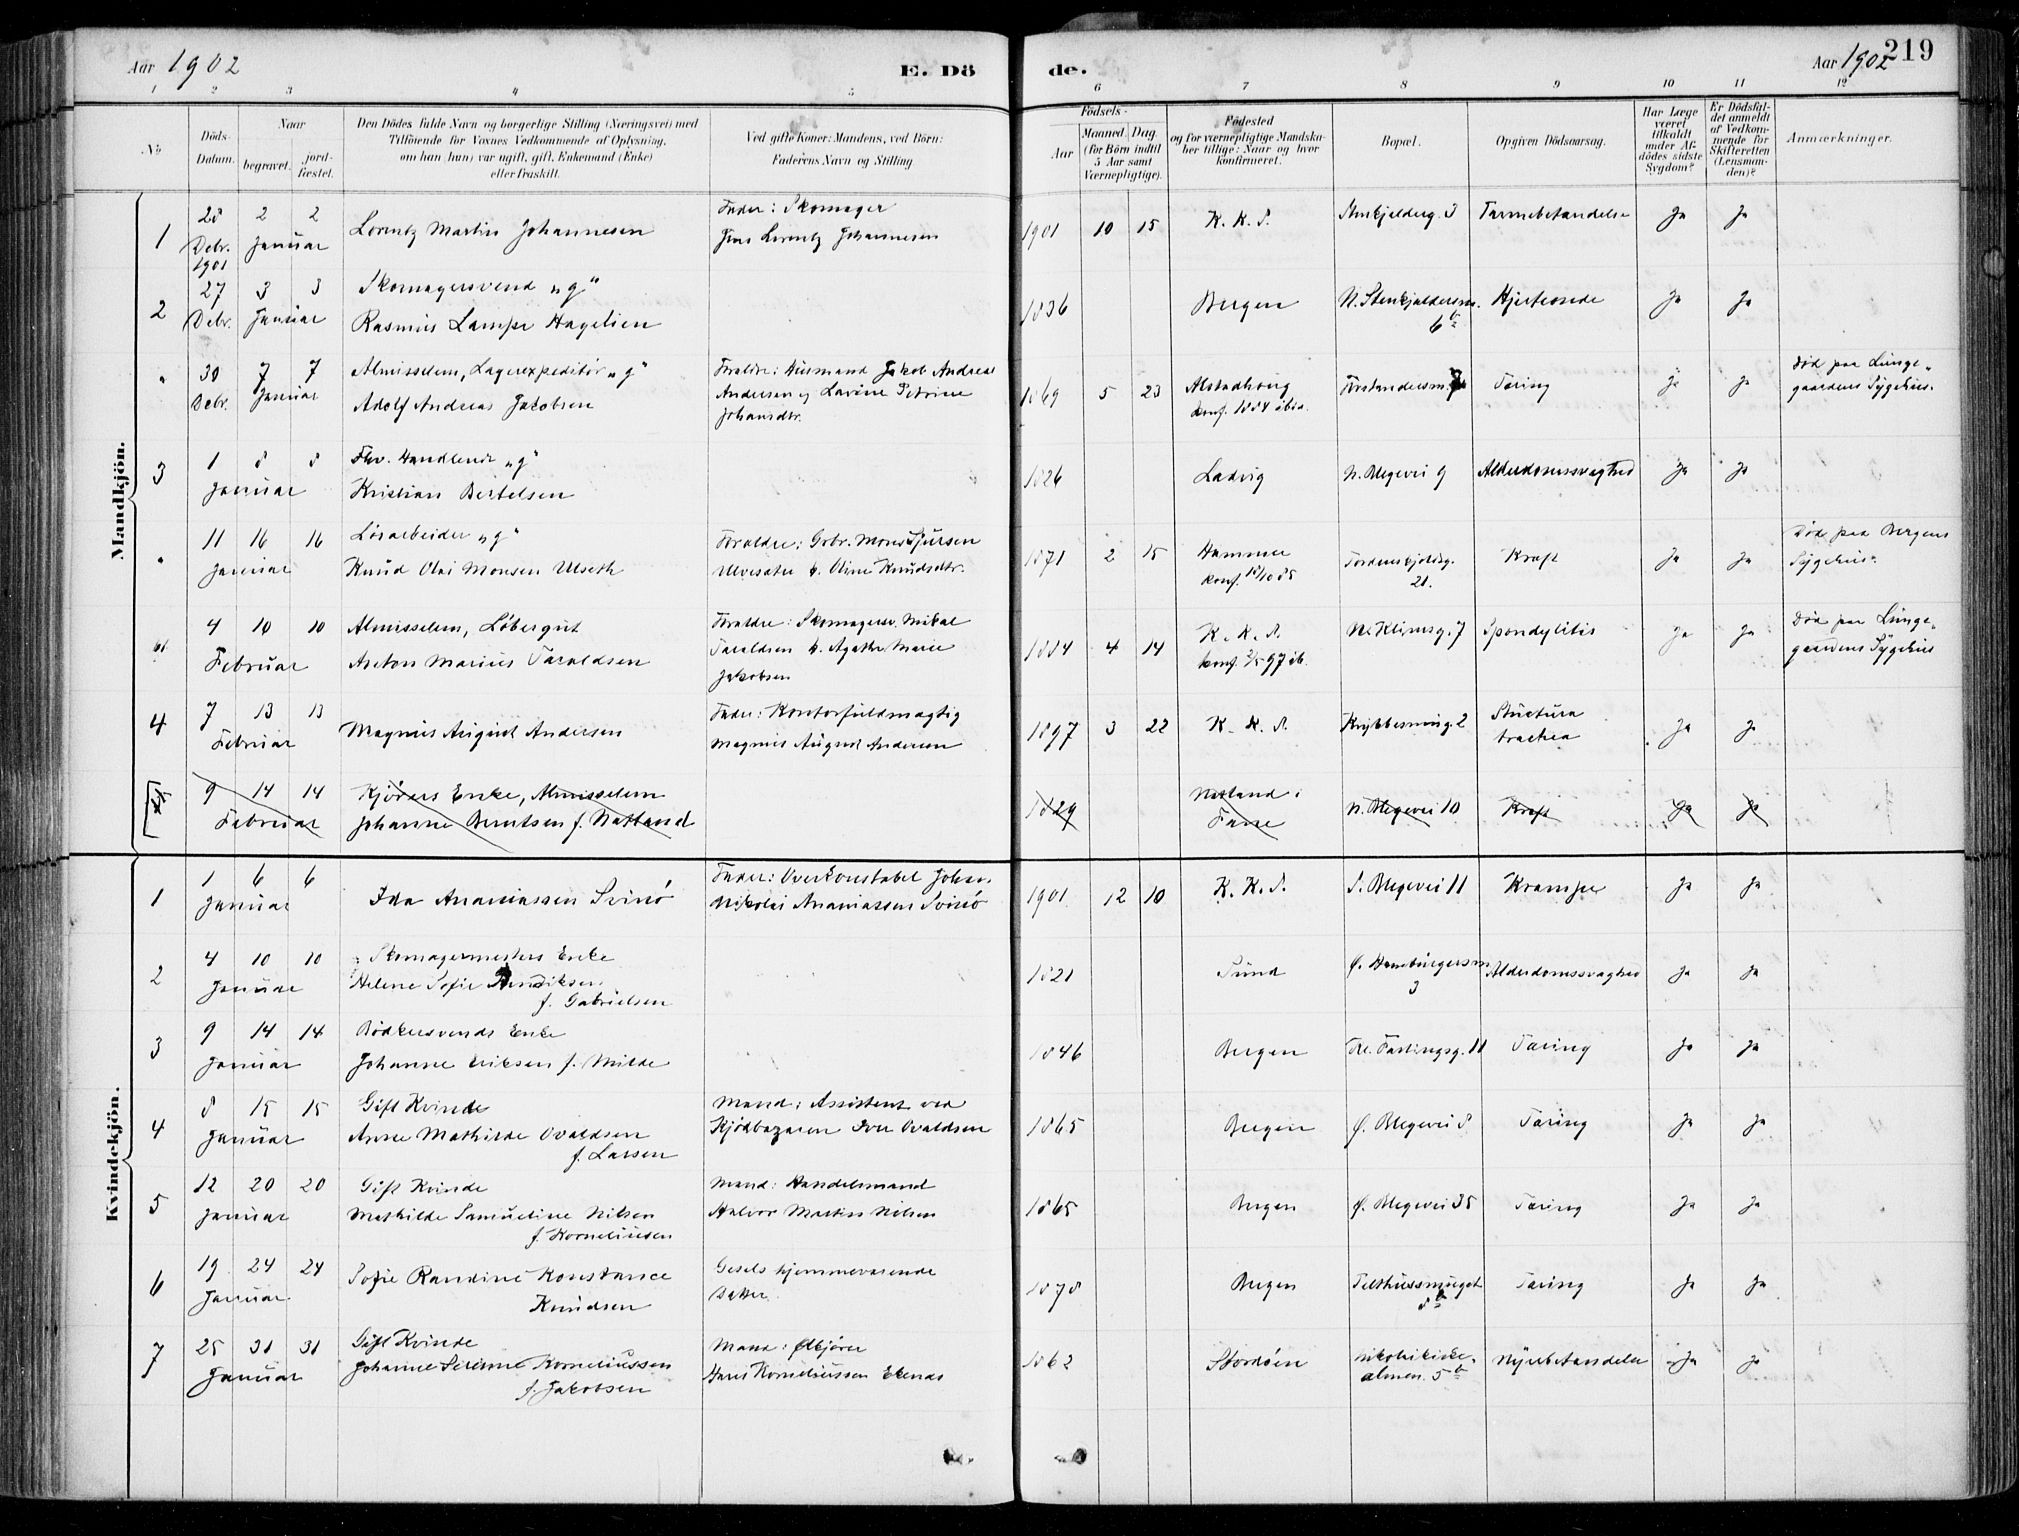 Aar 1902
E. Dö
de.
Aar 1902
219
1 2 3 4 5 6 7 8 9 10 11 12
No
Döds-Datum.
Naar begravet. jordfæstet.
Den Dödes fulde Navn og borgerlige Stilling (Næringsvei) med Tilföiende for Voxnes Vedkommende af Oplysning, om han (hun) var ugift, gift, Enkemand (Enke) eller fraskilt.
Ved gifte Koner: Mandens, ved Börn: Faderens Navn og Stilling
Födsels-
Aar
Maaned. Dag. (for Börn indtil 5 Aar samt Værnepligtige).
Födested og for værnepligtige Mandskaber tillige: Naar og hvor konfirmeret.
Bopæl.
Opgiven Dödsaarsag.
Har Læge været tilkaldt under Afdödes sidste Sygdom?
Er Dödsfaldet anmeldt af Vedkommende for Skifteretten (Lensmanden)?
Anmærkninger.
Mandkjön.
1 28 Debr. 1901 2 2 Januar Lorentz Martin Johannesen Fader: Skomager Jens Lorentz Johannesen 1901 10 15 K. K. S. Stenkjelderg. 3 Tarmebetændelse Ja Ja
2 27 Debr. 3 3 Januar Skomagersvend "g" Rasmus Lampe Hagelien 1836 Bergen N. Stenkjeldersm. 6 b Hjerteonde Ja Ja
" 30 Debr. 7 7 Januar Almisselem, Lagerexpeditør "g" Adolf Andreas Jakobsen Foraldre: Husmand Jakob Andreas Andersen og Lavine Petrine Johansdtr. 1869 5 23 Alstadhoug konf. 1884 ibid. Forstandersm. 7 Tæring Ja Ja Død paa Lungegaardens Sygehus.
3 1 8 8 Januar Fhv. Handlende "g" Kristian Bertelsen 1826 Ladvig N. Blegevei 9 Alderdomssvaghed Ja Ja
" 11 16 16 Januar Løsarbeider "g" Knud Olai Monsen Ulseth Foraldre: Gbr. Mons Sjursen Ulvesæter & Oline Knudsdtr. 1871 2 15 Hammer konf. 18/10 85 Tordenskjoldsg. 21. Kræft Ja Ja Død paa Bergens Sygehus.
" 4 10 10 Februar Almisselem, Løbergut Anton Marius Taraldsen Foraldre: Skomagersv. Mikal Taraldsen & Agathe Marie Jakobsen 1884 4 14 K. K. S. Ne. Klimsg. 7 Spondylitis Ja Ja Død paa Lungegaardens Sygehus
4 7 13 13 Februar Magnus August Andersen Fader: Kontorfuldmægtig Magnus August Andersen 1897 3 22 K. K. S. Krybbesmug. 2 Strictura trachea Ja Ja
9 14 14 Februar Kjørers Enke, Almisselem Johanne Berntsen f. Natland 1829 Natland i Fane N. Blegevei 10 Kræft Ja Ja
Kvindekjön.
1 1 6 6 Januar Ida Ananiassen Svinø Fader: Overkonstabel Johan Nikolai Ananiassen Svinø 1901 12 10 K. K. S. S. Blegevei 11 Krampe Ja Ja
2 4 10 10 Januar Skomagermesters Enke Helene Sofie Hendriksen f. Gabrielsen 1821 Sund Ø. Hamburgersm. 3 Alderdomssvaghed Ja Ja
3 9 14 14 Januar Bødkersvends Enke Johanne Eriksen f. Milde 1846 Bergen Kl. Fastingsg. 11 Tæring Ja Ja
4 8 15 15 Januar Gift Kvinde Anne Mathilde Ovaldsen f. Larsen Mand: Assistent ved Kjødbazaren Iver Ovaldsen 1865 Bergen Ø. Blegevei 8 Tæring Ja Ja
5 12 20 20 Januar Gift Kvinde Mathilde Samueline Nilsen f. Korneliusen Mand: Handelsmand Halvor Martin Nilsen 1865 Bergen Ø. Blegevei 35 Tæring Ja Ja
6 19 24 24 Januar Sofie Randine Konstance Knudsen hjemmeværende Datter. 1878 Bergen Telthussmuget 8 b Tæring Ja Ja
7 25 31 31 Januar Gift Kvinde Johanne Severine Korneliussen f. Jakobsen Mand: Ølkjører Hans Korneliussen Ekenæs 1862 Stordøen Nikolaikirkealmen. 5 b Nyrebetændelse Ja Ja